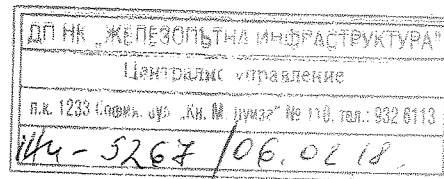 ДП НК „ЖЕЛЕЗОПЪТНА ИНФРАСТРУКТУРА"
Централно управление
п.к. 1233 София, бул. „Кн. М. Луиза" № 110, тел.: 932 6113
ЖИ - 5267 / 06. 02 18.